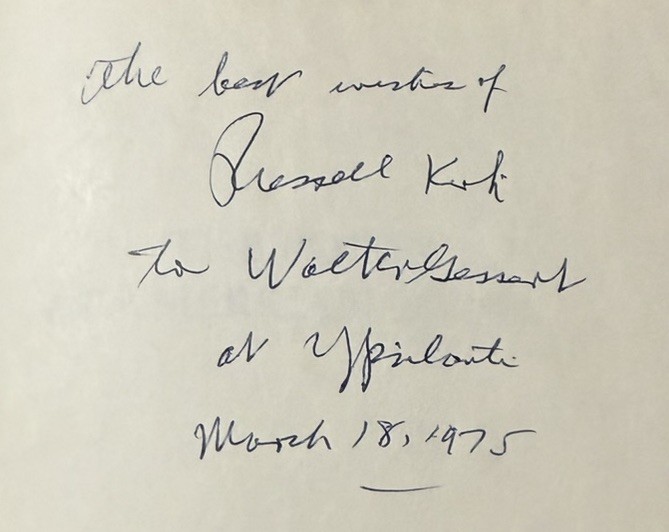 The best wishes of
Russell Kirk
to Walter Gessert
at Ypsilanti
March 18, 1975